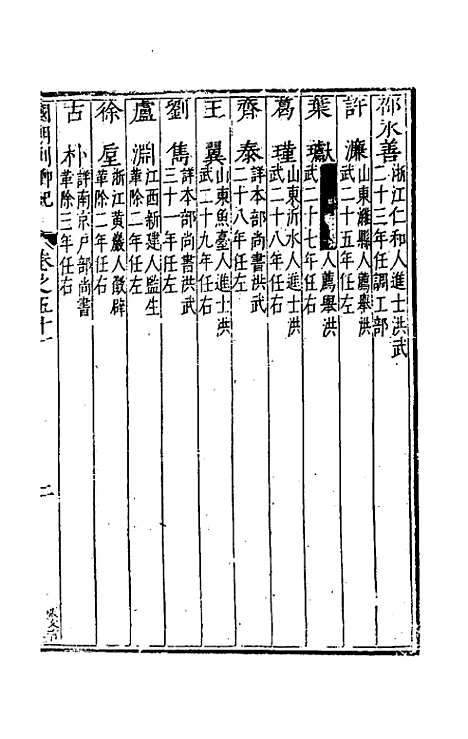 祁永善 浙江仁和人進士洪武
二十三年任調工部
許濂 山東濰縣人薦舉洪
武二十五年任左
葉獻 人薦舉洪
武二十七年任右
葛瑾 山東沂水人進士洪
武二十八年任右
齊泰 詳本部尚書洪武
二十八年任左
王翼 山東魚臺人進士洪
武二十九年任右
劉雋 詳本部尚書洪武
三十一年任左
盧淵 江西新建人監生
革除二年任左
徐垕 浙江黄巖人徵辟
革除二年任右
古朴 詳南京戸部尚書
革除三年任右
國朝列卿紀 卷之五十一 二